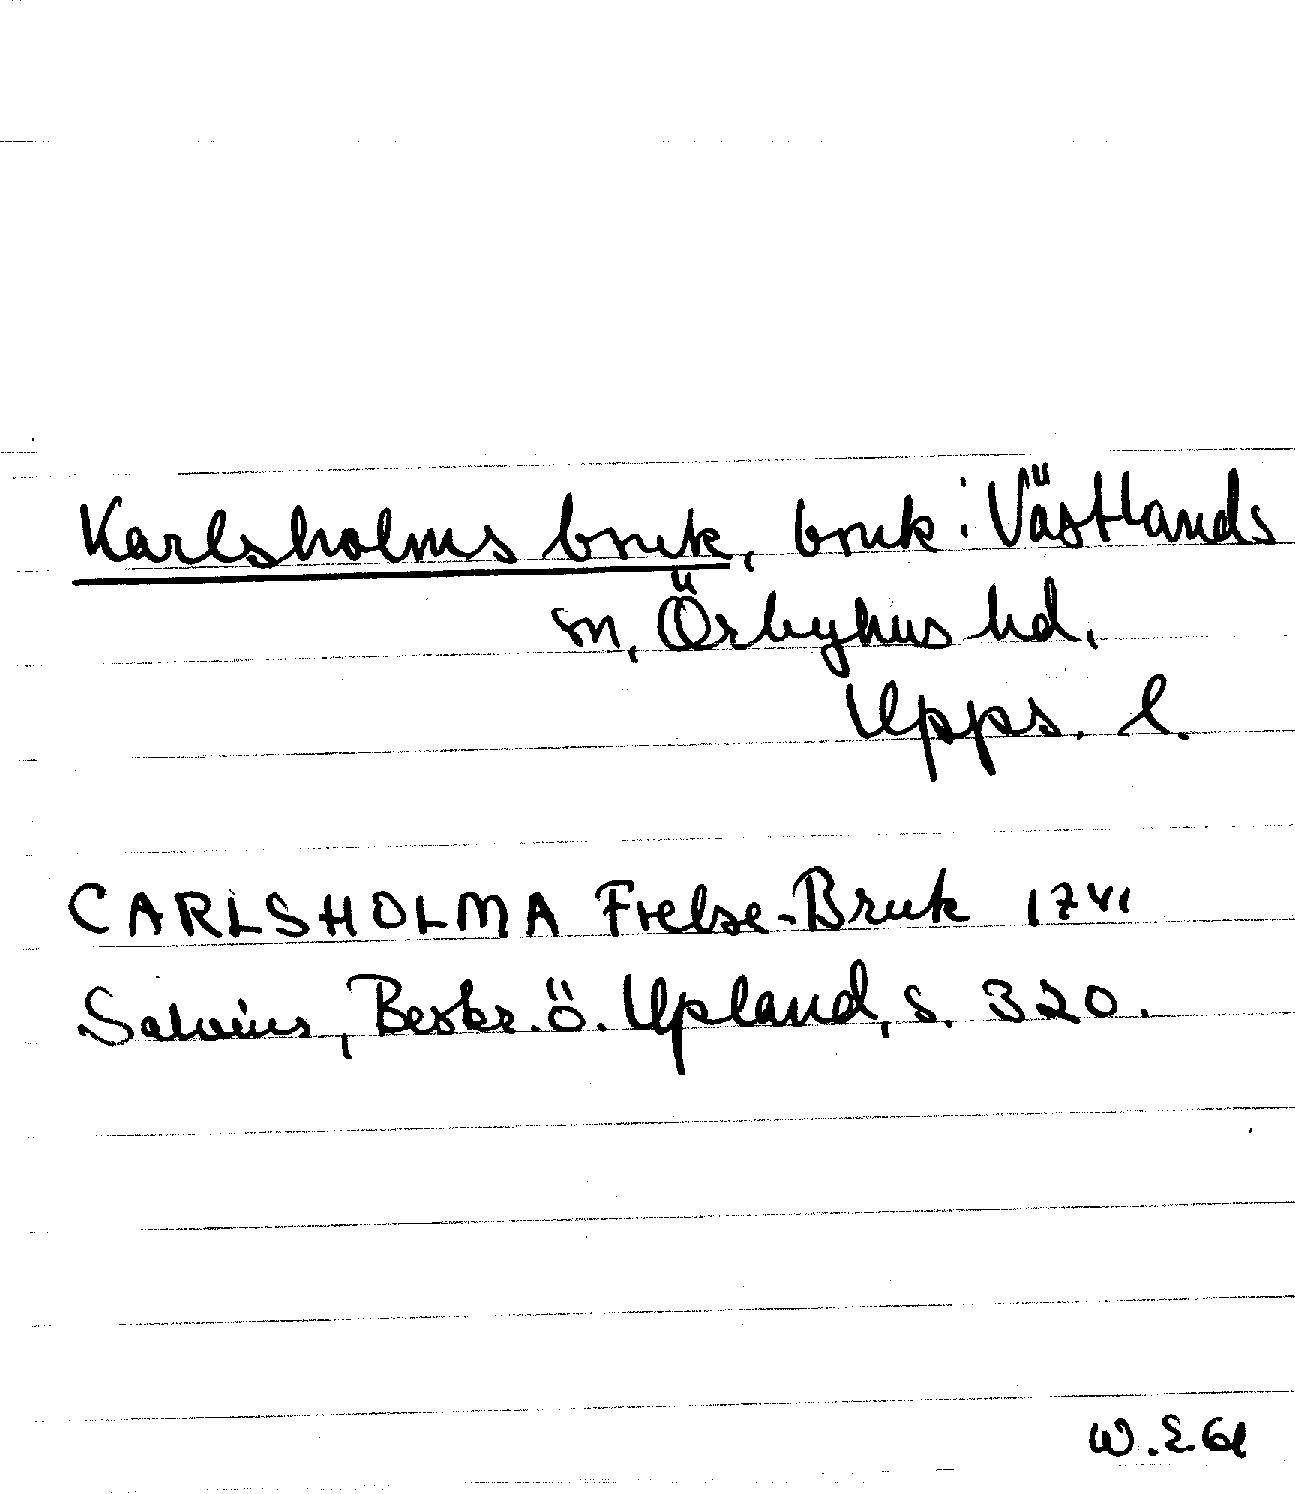 Karlsholms bruk, bruk i Västlands
sn, Örbyhus hd,
Upps. l.
CARLSHOLMA Frelse-Bruk 1741
Salvius, Beskr. ö. Upland, s. 320.
W.E61